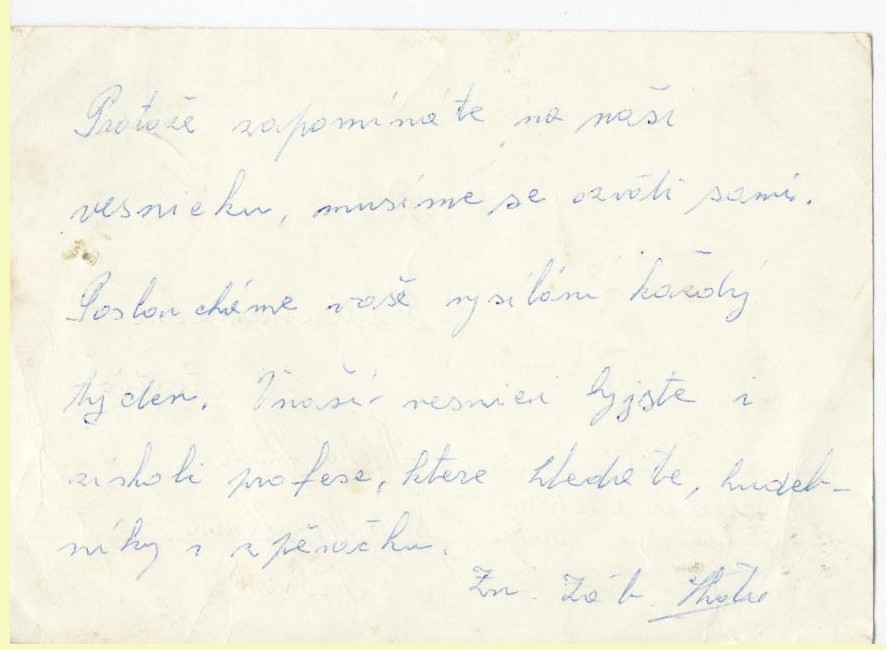 Protože zapomínáte na naši
vesničku, musíme se ozvati sami.
Posloucháme vaše vysílání každý
týden. V naší vesnici byjste i
získali profese, ktere hledáte, hudeb-
níky i zpěvačku.
Zn. Záb